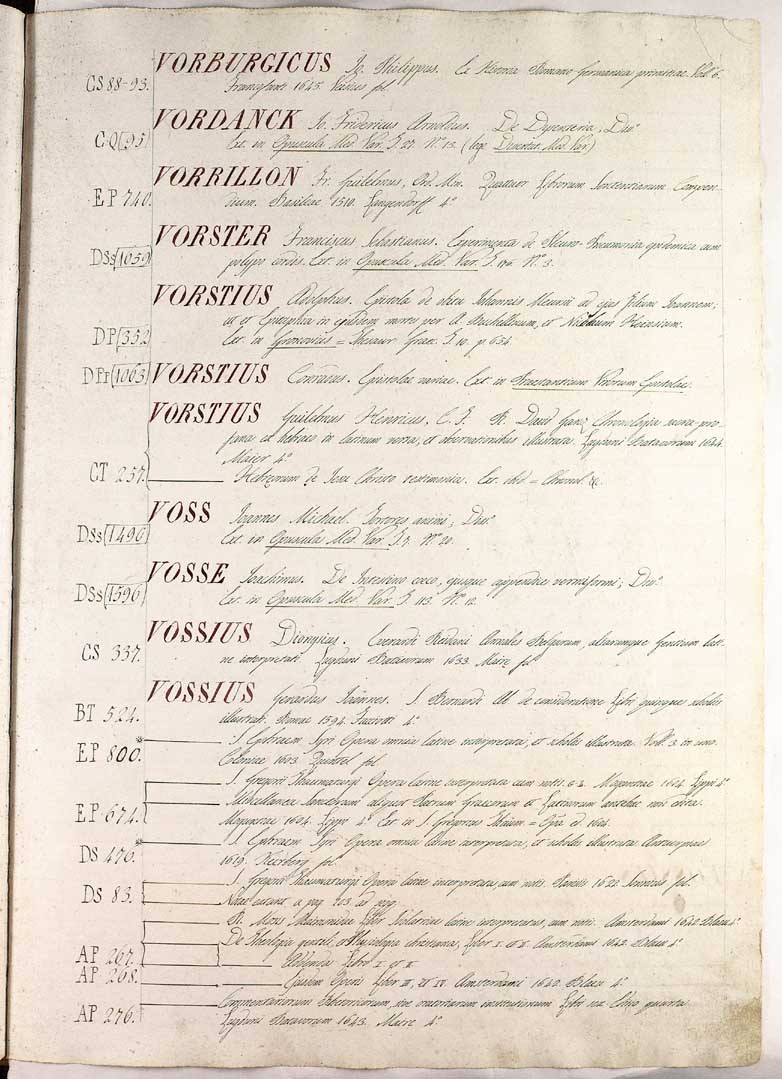 VORBURGICUS Jo. Philippus. Historia Romano-Germanica primitiae. Voll. 6.
CS 88-93. Francofurti 1645. fol.
VORDANCK Jo. Fridericus Arnoldus. De Dysenteria; Diss.
CQ (95) Ext. in Opuscula Med. Var. T. 27. N. 13. (lege Dissertat. Med. Var.)
VORRILLON Fr. Guilelmus, Ord. Min. Quattuor Librorum Sententiarum Compen-
EP 740. dium. Basileae 1510. Langendorff 4°
VORSTER Franciscus Sebastianus. Experimenta de Pleuro-Pneumonia epidemica cum
DSs (1059) polypo cordis. Ext. in Opuscula Med. Var. T. 176. N. 3.
VORSTIUS Adolphus. Epistola de obitu Johannis Meursii ad ejus filium Joannem;
ut et Epitaphia in ejusdem mortem per A. et Nicolaum Heinsium.
DP (352 Ext. in Gronovius = Thesaur. Graec. T. 10. p. 654.
DPr (1063) VORSTIUS Conradus. Epistolae variae. Ext. in Praestantium Virorum Epistolae.
VORSTIUS Guilelmus Henricus, C. F. R. David Ganz Chronologia sacra-pro-
fana ex hebraeo in latinum versa, et observationibus illustrata. Lugduni Batavorum 1644.
Maire 4°
CT 257. Hebraeorum de Jesu Christo testimonia. Ext. ibid = Chronol. &c.
VOSS Joannes Michael. Torpores animi; Diss.
DSs (1496) Ext. in Opuscula Med. Var. T. 7. N. 20.
VOSSE Joachimus. De Intestino coeco, ejusque appendice vermiformi; Diss.
DSs (1596) Ext. in Opuscula Med. Var. T. 113. N. 12.
VOSSIUS Dionysius. Everardi Reidani Annales Belgarum, aliarumque Gentium lati-
CS 337. ne interpretati. Lugduni Batavorum 1633. Maire fol.
VOSSIUS Gerardus Joannes. S. Bernardi Ab. de consideratione Libri quinque scholiis
BT 524. illustrati. Romae 1594. 4°
S. Ephraem Syri Opera omnia latine interpretata, et scholiis illustrata. Voll. 3. in uno.
EP 800. Coloniae 1603. Quentel fol.
S. Gregorii Thaumaturgi Opera latine interpretata cum notis. Moguntiae 1604. Lippi 4°
Miscellanea Sanctorum aliquot Patrum Graecorum et Latinorum antehac non edita.
EP 674. Moguntiae 1604. Lippi 4° Ext. in S. Gregorius Thaum = Opera ed. 1604.
S. Ephraem Syri Opera omnia latine interpretata, et scholiis illustrata. Antuerpiae
DS 476. 1619. Keerberg fol.
S. Gregorii Thaumaturgi Opera latine interpretata, cum notis. Parisiis 1622. Sonnius fol.
DS 83. Notae extant a pag. 203 ad pag.
R. Mosis Maimonidae Liber Idolatriae latine interpretatus, cum notis. Amsterdami 1642. Blaeu 4°
De Theologia gentili, et Physiologia christiana, Liber I. et II. Amsterdami 1642. Blaeu 4°
AP 267. Additamenta Libro I et II.
AP 268. Ejusdem Operis Liber III, et IV. Amsterdami 1642. Blaeu 4°
Commentariorum Rhetoricorum, sive oratoriarum institutionum Libri sex. Editio quarta.
AP 276. Lugduni Batavorum 1643. Maire 4°